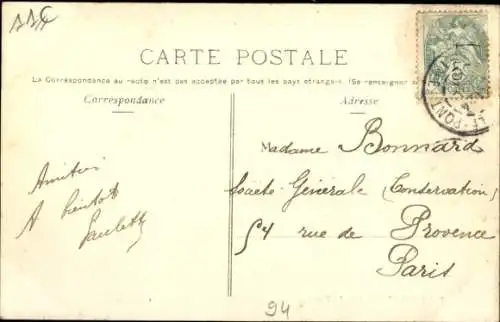 CARTE POSTALE
La Correspondance au recto n'est pas acceptée par tous les pays étrangers. (Se renseigner
Correspondance
Adresse
Madame Bonnard
Société Générale (Conservation)
54 rue de Provence
Paris
Amitiés
A bientôt
Paulette
94